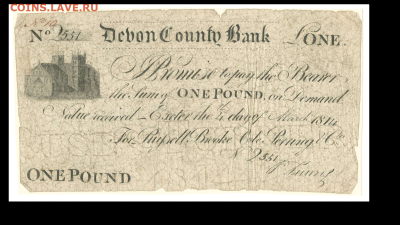 COINS.LAVE.RU
No 2551 Devon County Bank £ONE.
I Promise to pay the Bearer
the Sum of ONE POUND, on Demand
Value received Exeter the day of March 1811
For Russell, Brooke & Co.
No 2551
ONE POUND